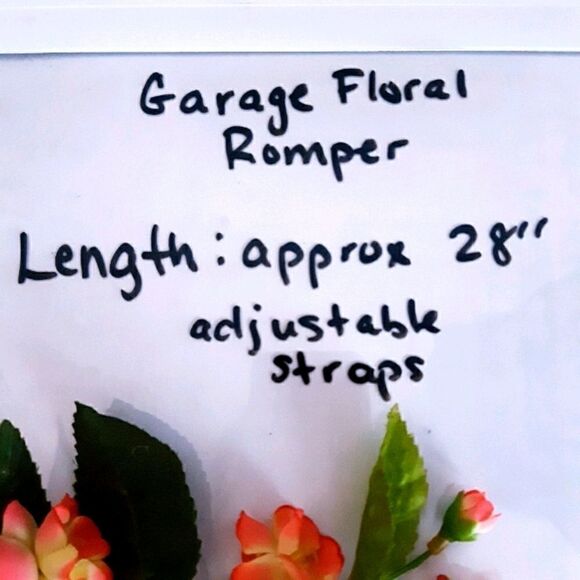 Garage Floral
Romper
Length: approx 28"
adjustable
straps